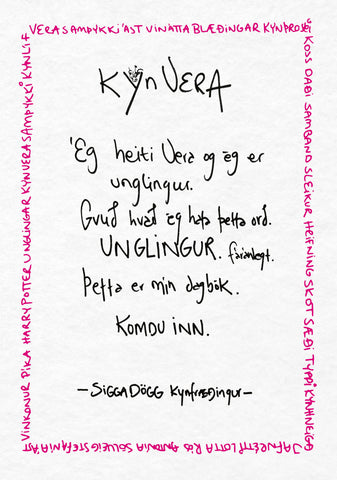 VERA SAMÞYKKI ÁST VINÁTTA BLÆÐINGAR KYNÞROSKI
KOSS DAÐI SAMBAND SLEIKUR HEFNING SKOT SÆÐI TYPPI KYNHNEIGÐ
KYNVERA
Ég heiti Vera og ég er
unglingur.
Guð hvað ég hata þetta orð.
UNGLINGUR. fáránlegt.
Þetta er mín dagbók.
KOMDU INN.
— SIGGA DÖGG kynfræðingur —
JAFNRÉTTI LOTTA RÓS ANTONIA SOLVEIG STEFANÍA ÁST
VINKONUR PÍKA HARRY POTTER UNGLINGAR KYNVERA SAMÞYKKI KYNLÍF